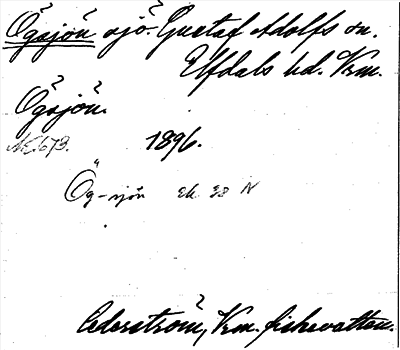 Ögsjön sjö. Gustaf Adolfs sn.
Elfdals hd. Vrm.
Ögsjön.
1896.
Ög-sjön Ek 38 N
Cederström, Vrm. fiskevatten.